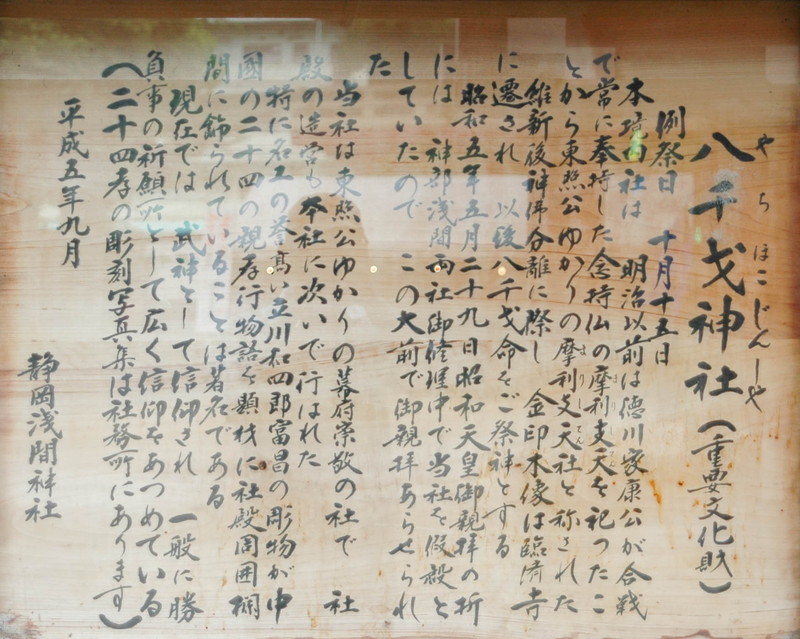 やちほこじんじゃ
八千戈神社(重要文化財)
例祭日 十月十五日
本境内社は 明治以前は徳川家康公が合戦
で常に奉持した念持仏の摩利支天を祀ったこ
とから東照公ゆかりの摩利支天社と称された
維新後神佛分離に際し 金印木像は臨済寺
に遷され 以後八千戈命をご祭神とする
昭和五年五月二十九日昭和天皇御親拝の折
には 神部浅間両社御修理中で当社を假殿と
していたので この大前で御親拝あらせられ
た
当社は東照公ゆかりの幕府崇敬の社で 社
殿の造営も本社に次いで行はれた
特に名工の誉高い立川和四郎富昌の彫物が中
國の二十四の親孝行物語を題材に社殿周囲欄
間に飾られていることは著名である
現在では 武神として信仰され 一般に勝
負事の祈願所として広く信仰をあつめている
(二十四孝の彫刻写真集は社務所にあります)
平成五年九月
静岡浅間神社